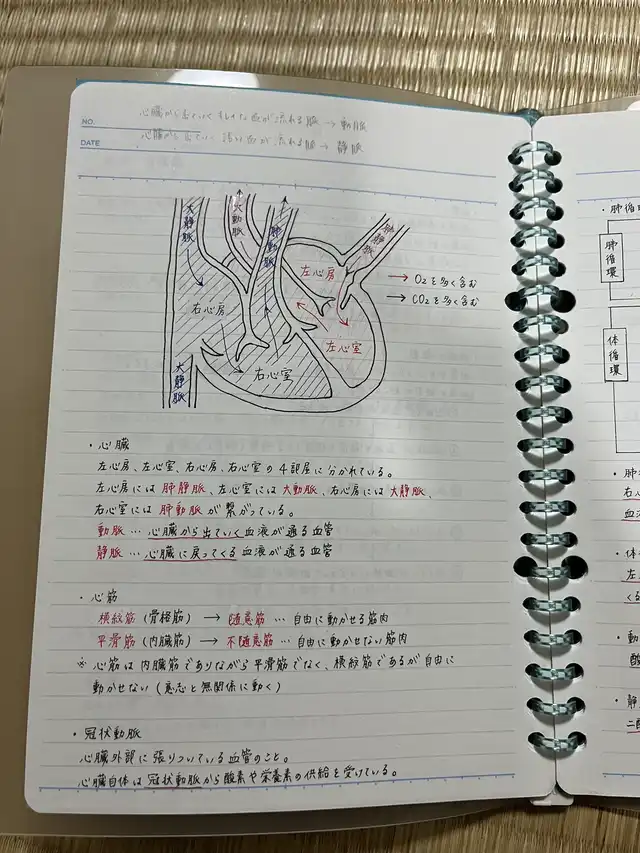 NO.
DATE
心臓から出ていくキレイな血が流れる脈 → 動脈
心臓から出ていく 汚い血が流れる脈 → 静脈
大静脈
大動脈
肺動脈
肺静脈
左心房
右心房
左心室
右心室
大静脈
→ O₂を多く含む
→ CO₂を多く含む
・心臓
左心房、左心室、右心房、右心室の4部屋に分かれている。
左心房には肺静脈、左心室には大動脈、右心房には大静脈、
右心室には肺動脈が繋がっている。
動脈 … 心臓から出ていく血液が通る血管
静脈 … 心臓に戻ってくる血液が通る血管
・心筋
横紋筋(骨格筋) → 随意筋 … 自由に動かせる筋肉
平滑筋(内臓筋) → 不随意筋 … 自由に動かせない筋肉
※ 心筋は内臓筋でありながら平滑筋でなく、横紋筋であるが自由に
動かせない(意志と無関係に動く)
・冠状動脈
心臓外部に張りついている血管のこと。
心臓自体は冠状動脈から酸素や栄養素の供給を受けている。
・肺循
肺循環
体循環
・肺
右
血液
・体
左
くる
・動
酸
・静
二酸